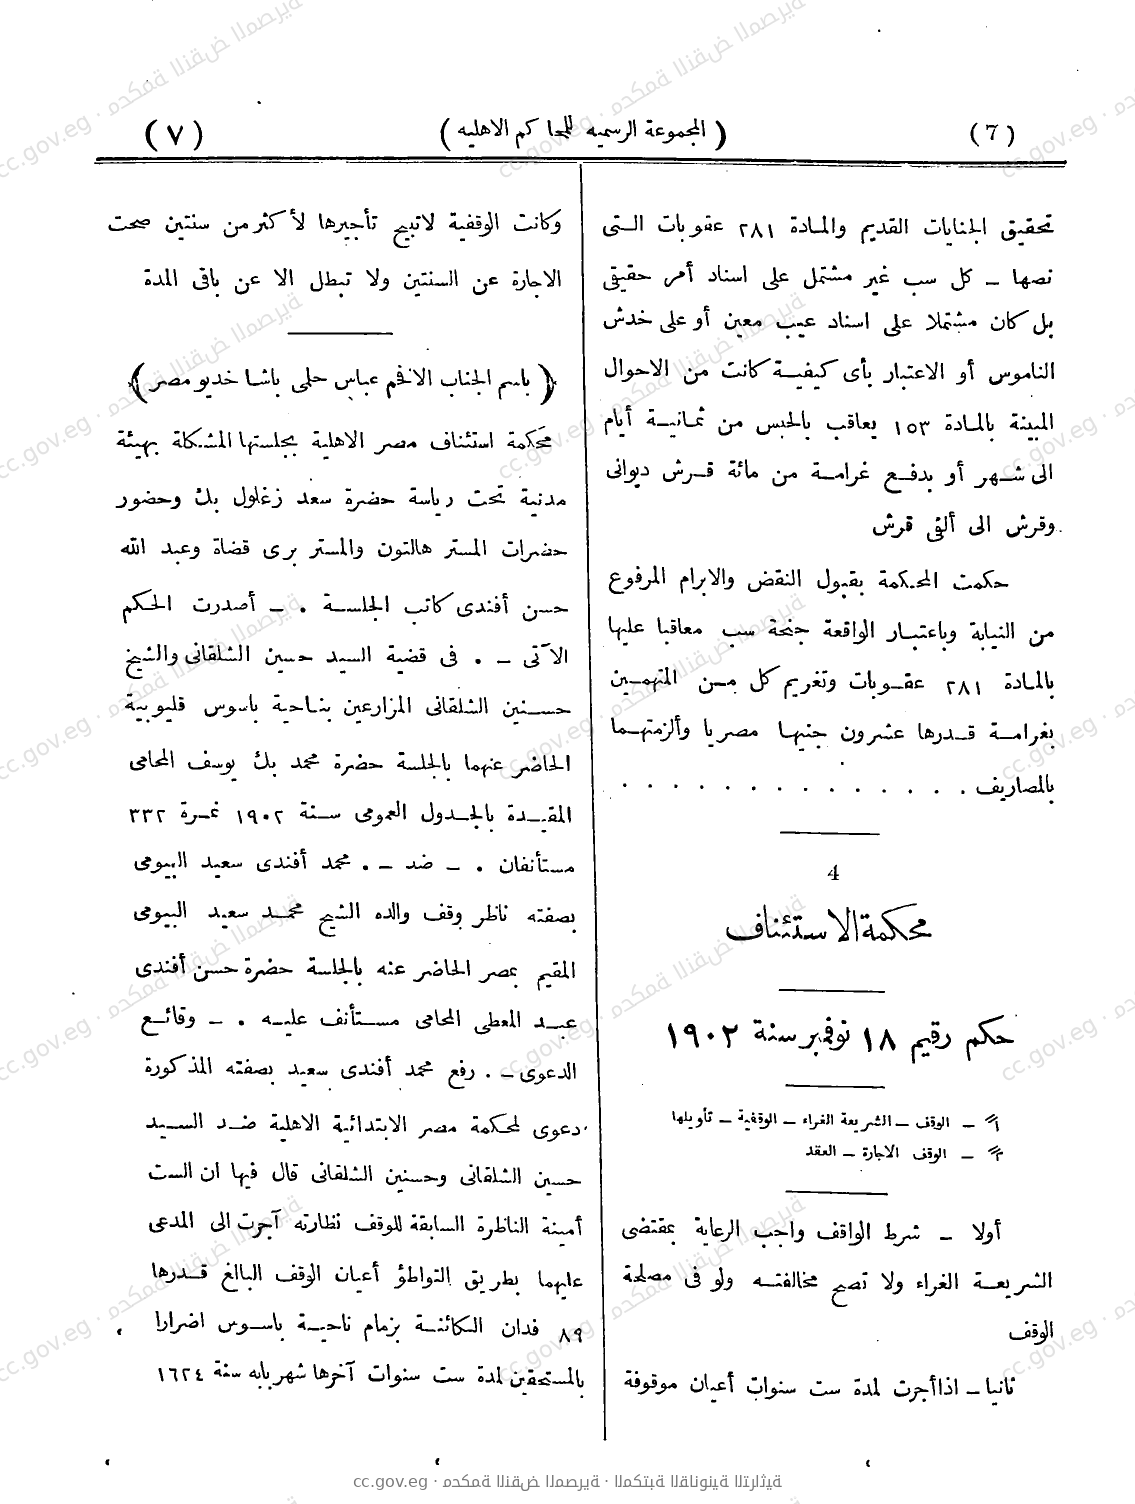 (7) (المجموعة الرسميه للمحاكم الاهليه) (٧)
تحقيق الجنايات القديم والمادة ٢٨١ عقوبات التى
نصها – كل سب غير مشتمل على اسناد أمر حقيقى
بل كان مشتملا على اسناد عيب معين أو على خدش
الناموس أو الاعتبار بأى كيفية كانت من الاحوال
المبينة بالمادة ١٥٣ يعاقب بالحبس من ثمانية أيام
الى شهر أو بدفع غرامة من مائة قرش ديوانى
وقرش الى ألفى قرش
حكمت المحكمة بقبول النقض والابرام المرفوع
من النيابة وباعتبار الواقعة جنحة سب معاقبا عليها
بالمادة ٢٨١ عقوبات وتغريم كل من المتهمين
بغرامة قدرها عشرون جنيها مصريا وألزمتهما
بالمصاريف . . . . . . . . . . . . . .
4
محكمة الاستئناف
حكم رقيم ١٨ نوفمبر سنة ١٩٠٢
١ – الوقف – الشريعة الغراء – الوقفية – تأويلها
٢ – الوقف الاجارة – العقد
أولا – شرط الواقف واجب الرعاية بمقتضى
الشريعة الغراء ولا تصح مخالفته ولو فى مصلحة
الوقف
ثانيا – اذا أجرت لمدة ست سنوات أعيان موقوفة
وكانت الوقفية لاتبيح تأجيرها لأكثر من سنتين صحت
الاجارة عن السنتين ولا تبطل الا عن باقى المدة
(باسم الجناب الافخم عباس حلمى باشا خديو مصر)
محكمة استئناف مصر الاهلية بجلستها المشكلة بهيئة
مدنية تحت رياسة حضرة سعد زغلول بك وحضور
حضرات المستر هالتون والمستر برى قضاة وعبد الله
حسن أفندى كاتب الجلسة . – أصدرت الحكم
الآتى – . فى قضية السيد حسين الشلقانى والشيخ
حسنين الشلقانى المزارعين بناحية باسوس قليوبية
الحاضر عنهما بالجلسة حضرة محمد بك يوسف المحامى
المقيدة بالجدول العمومى سنة ١٩٠٢ نمرة ٣٣٢
مستأنفان . – ضد – . محمد أفندى سعيد البيومى
بصفته ناظر وقف والده الشيخ محمد سعيد البيومى
المقيم بمصر الحاضر عنه بالجلسة حضرة حسن أفندى
عبد المعطى المحامى مستأنف عليه . – وقائع
الدعوى – . رفع محمد أفندى سعيد بصفته المذكورة
دعوى لمحكمة مصر الابتدائية الاهلية ضد السيد
حسين الشلقانى وحسنين الشلقانى قال فيها ان الست
أمينة الناظرة السابقة للوقف نظارته آجرت الى المدعى
عليهما بطريق التواطؤ أعيان الوقف البالغ قدرها
٨٩ فدان الكائنة بزمام ناحية باسوس اضرارا
بالمستحقين لمدة ست سنوات آخرها شهر بابه سنة ١٦٢٤
cc.gov.eg · محكمة النقض المصرية · المكتبة القانونية التراثية